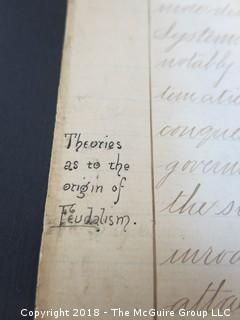 Theories
as to the
origin of
Feudalism.
more de
Systema
notably
tematic
conque
govern
the s
inroa
atta
Copyright 2018 - The McGuire Group LLC